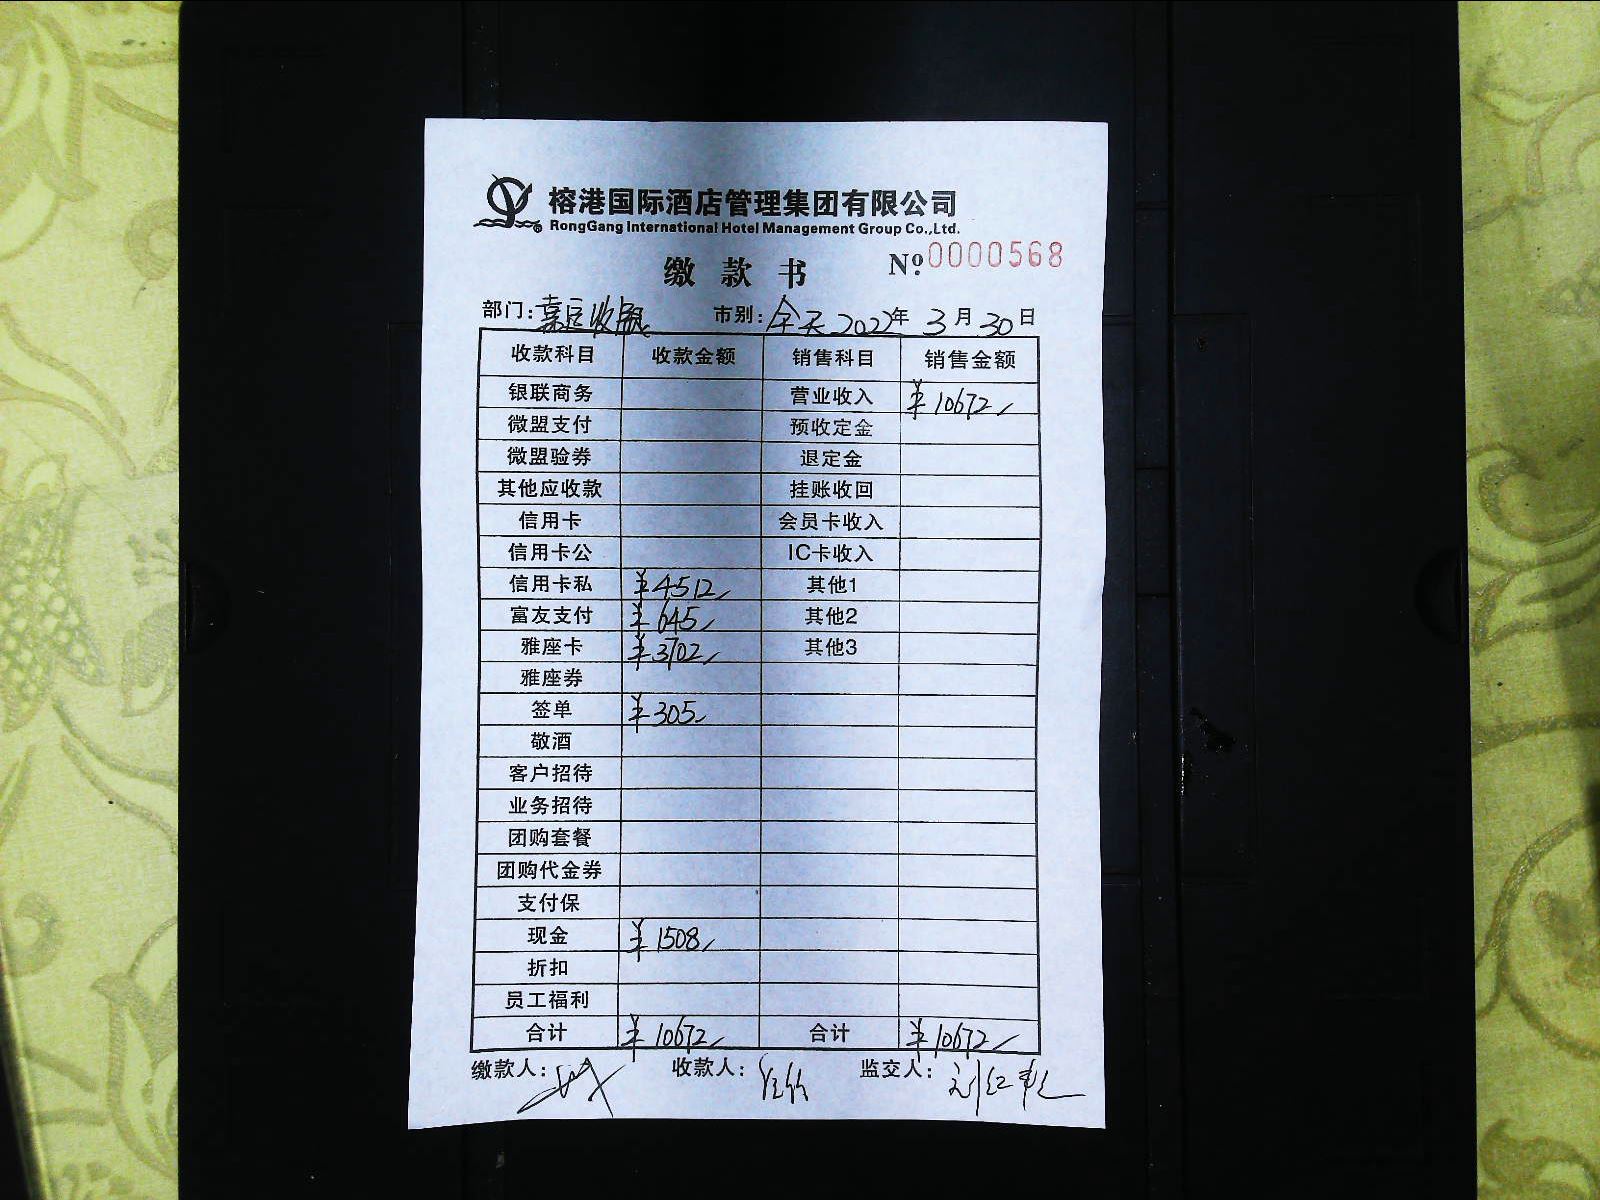 榕港国际酒店管理集团有限公司
RongGang International Hotel Management Group Co.,Ltd.
缴款书 Nº:0000568
部门:嘉宾收银 市别:全天 2022年3月30日
收款科目 收款金额 销售科目 销售金额
银联商务 营业收入 ¥10672
微盟支付 预收定金
微盟验券 退定金
其他应收款 挂账收回
信用卡 会员卡收入
信用卡公 IC卡收入
信用卡私 ¥4512 其他1
富友支付 ¥645 其他2
雅座卡 ¥3702 其他3
雅座券
签单 ¥305
敬酒
客户招待
业务招待
团购套餐
团购代金券
支付保
现金 ¥1508
折扣
员工福利
合计 ¥10672 合计 ¥10672
缴款人: 收款人: 监交人: